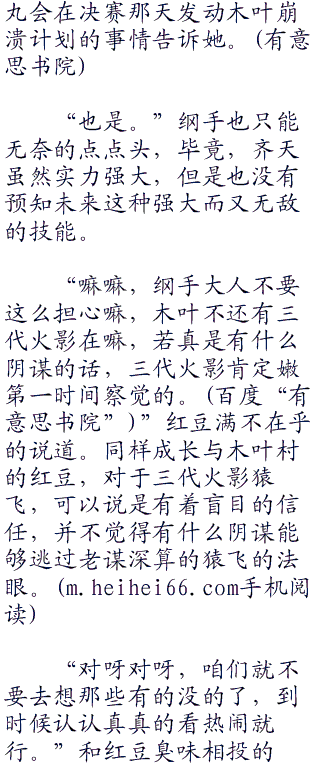 丸会在决赛那天发动木叶崩
溃计划的事情告诉她。(有意
思书院)
“也是。”纲手也只能
无奈的点点头，毕竟，齐天
虽然实力强大，但是也没有
预知未来这种强大而又无敌
的技能。
“嘛嘛，纲手大人不要
这么担心嘛，木叶不还有三
代火影在嘛，若真是有什么
阴谋的话，三代火影肯定嫩
第一时间察觉的。(百度“有
意思书院”)”红豆满不在乎
的说道。同样成长与木叶村
的红豆，对于三代火影猿
飞，可以说是有着盲目的信
任，并不觉得有什么阴谋能
够逃过老谋深算的猿飞的法
眼。(m.heihei66.com手机阅
读)
“对呀对呀，咱们就不
要去想那些有的没的了，到
时候认认真真的看热闹就
行。”和红豆臭味相投的